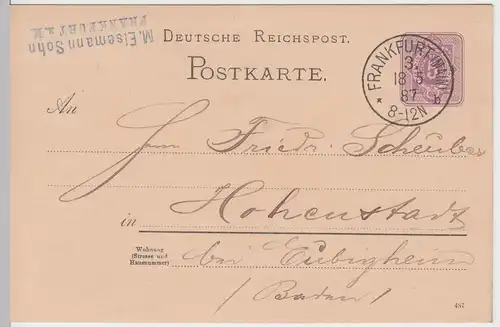 M. Eisemann Sohn
FRANKFURT a. M.
DEUTSCHE REICHSPOST.
POSTKARTE.
FRANKFURT (MAIN)
3.
18 5
87
8-12N
b
An
Herrn Friedr. Scheuber
in Hohenstadt
Wohnung
(Strasse und
Hausnummer)
bei Eubigheim
(Baden)
487